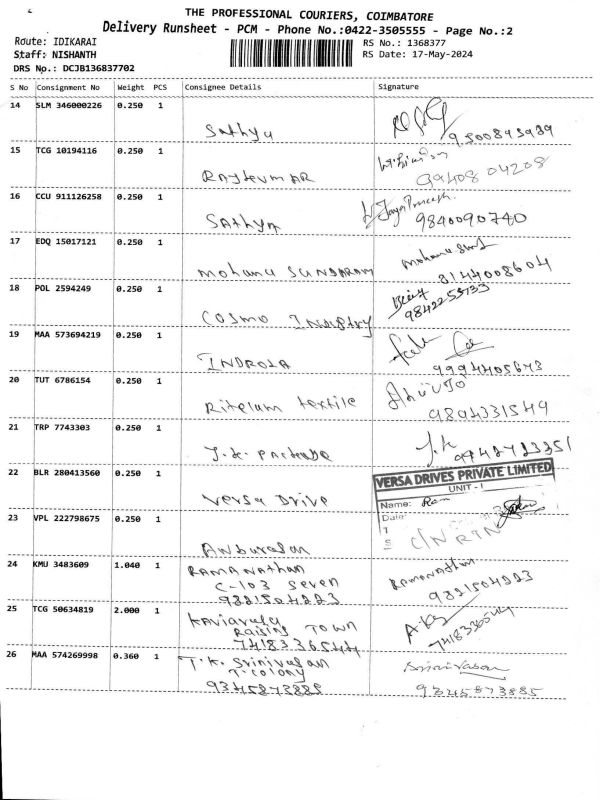 THE PROFESSIONAL COURIERS, COIMBATORE
Delivery Runsheet - PCM - Phone No.:0422-3505555 - Page No.:2
Route: IDIKARAI RS No.: 1368377
Staff: NISHANTH RS Date: 17-May-2024
DRS No.: DCJB136837702
S No Consignment No Weight PCS Consignee Details Signature
14 SLM 346000226 0.250 1
Sathya 9500895939
15 TCG 10194116 0.250 1
RAJKUMAR 9940804208
16 CCU 911126258 0.250 1
SAthyA 9840090740
17 EDQ 15017121 0.250 1
Mohana SUNDARAM 8144008604
18 POL 2594249 0.250 1
COSMO INDUSTRY 9842255733
19 MAA 573694219 0.250 1
INDROLA 9994405673
20 TUT 6786154 0.250 1
Ritelum textile 9894331549
21 TRP 7743303 0.250 1
J.K. Package J.K
22 BLR 280413560 0.250 1
Versa Drive
VERSA DRIVES PRIVATE LIMITED
UNIT - I
Name: Ram
Date:
23 VPL 222798675 0.250 1
Anburasan
24 KMU 3483609 1.040 1 RAMANAthan Ramanathan
C-103 Seven
9821504223 9821504223
25 TCG 50634819 2.000 1
Raising Town
7418336544 7418336544
26 MAA 574269998 0.360 1 T.K. Srinivasan Srinivasan
T-colony
9345873885 9345873885